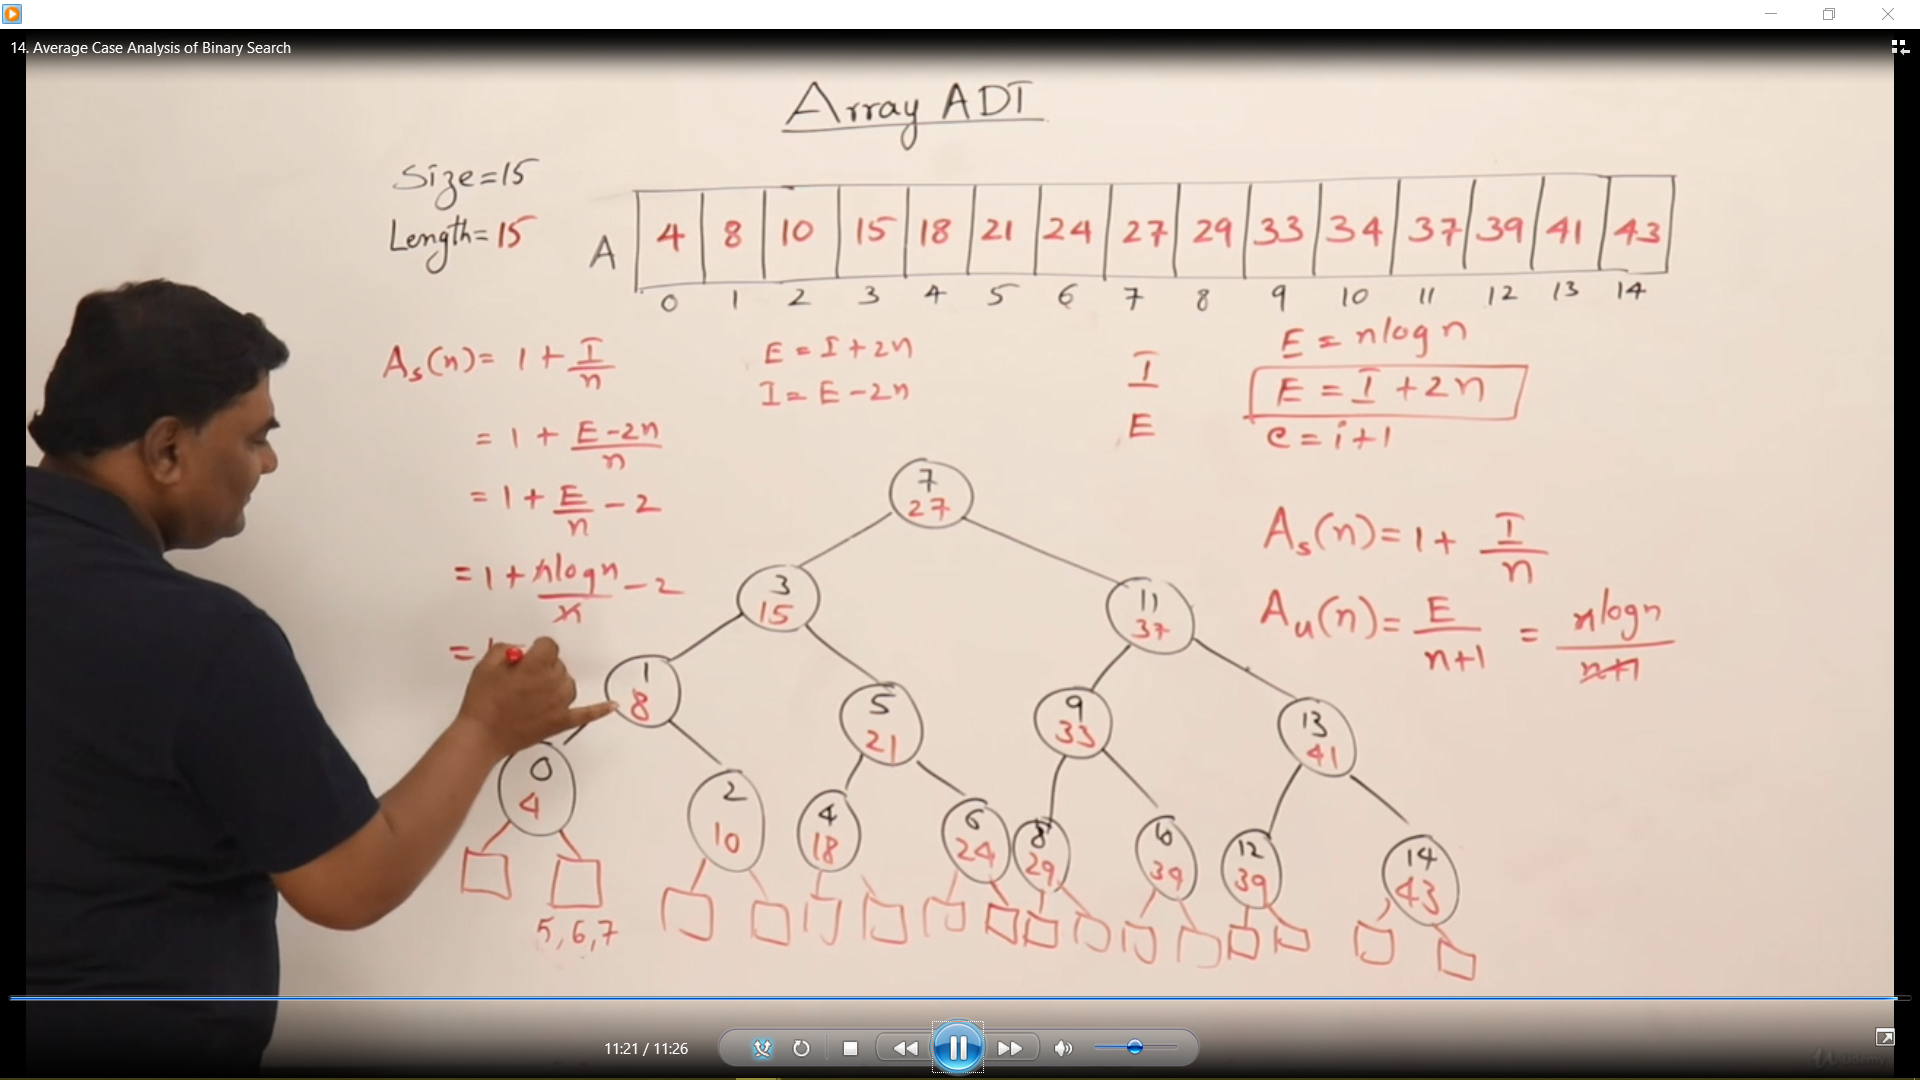 14. Average Case Analysis of Binary Search
Array ADT
Size=15
Length=15
A 4 8 10 15 18 21 24 27 29 33 34 37 39 41 43
0 1 2 3 4 5 6 7 8 9 10 11 12 13 14
As(n)= 1 + I/n
= 1 + E-2n/n
= 1 + E/n - 2
= 1 + nlogn/n - 2
=
E = I + 2n
I = E - 2n
I
E
E = nlogn
E = I + 2n
e = i+1
As(n)= 1 + I/n
Au(n)= E/n+1 = nlogn/n+1
7
27
3
15
11
37
1
8
5
21
9
33
13
41
0
4
2
10
4
18
6
24
8
29
10
39
12
39
14
43
5,6,7
11:21 / 11:26
Udemy